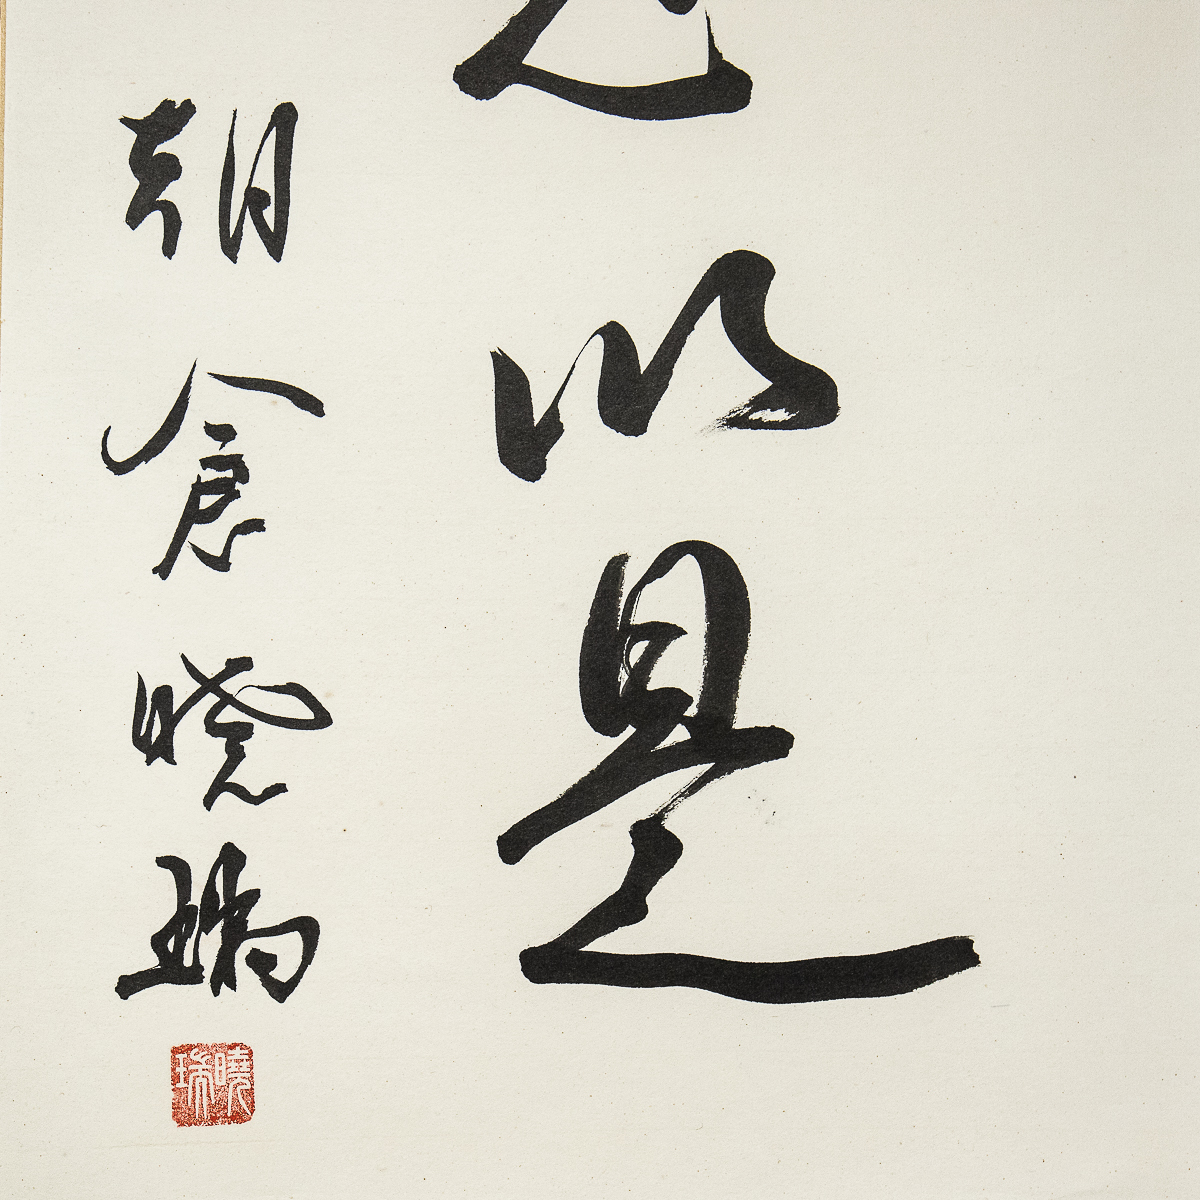 以是
朝倉曉瑞
曉瑞